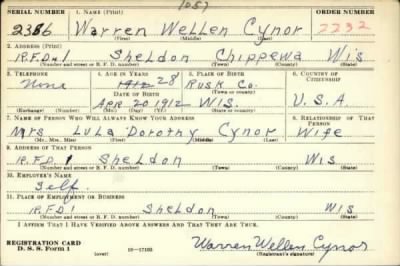 1057
SERIAL NUMBER 1. NAME (Print) ORDER NUMBER
2386 Warren Wellen Cynor 2232
(First) (Middle) (Last)
2. ADDRESS (Print)
R.F.D #1 Sheldon Chippewa Wis
(Number and street or R. F. D. number) (Town) (County) (State)
3. TELEPHONE 4. AGE IN YEARS 5. PLACE OF BIRTH 6. COUNTRY OF CITIZENSHIP
None 1912 28 Rusk Co.
DATE OF BIRTH (Town or county)
Apr 20 1912 Wis. U.S.A.
(Exchange) (Number) (Mo.) (Day) (Yr.) (State or country)
7. NAME OF PERSON WHO WILL ALWAYS KNOW YOUR ADDRESS 8. RELATIONSHIP OF THAT PERSON
Mrs Lula Dorothy Cynor Wife
(Mr., Mrs., Miss) (First) (Middle) (Last)
9. ADDRESS OF THAT PERSON
R.F.D. 1 Sheldon Wis
(Number and street or R. F. D. number) (Town) (County) (State)
10. EMPLOYER'S NAME
Self.
11. PLACE OF EMPLOYMENT OR BUSINESS
R.F.D.1 Sheldon Wis
(Number and street or R. F. D. number) (Town) (County) (State)
I AFFIRM THAT I HAVE VERIFIED ABOVE ANSWERS AND THAT THEY ARE TRUE.
REGISTRATION CARD
D. S. S. Form 1 (over) 16—17105 Warren Wellen Cynor
(Registrant's signature)